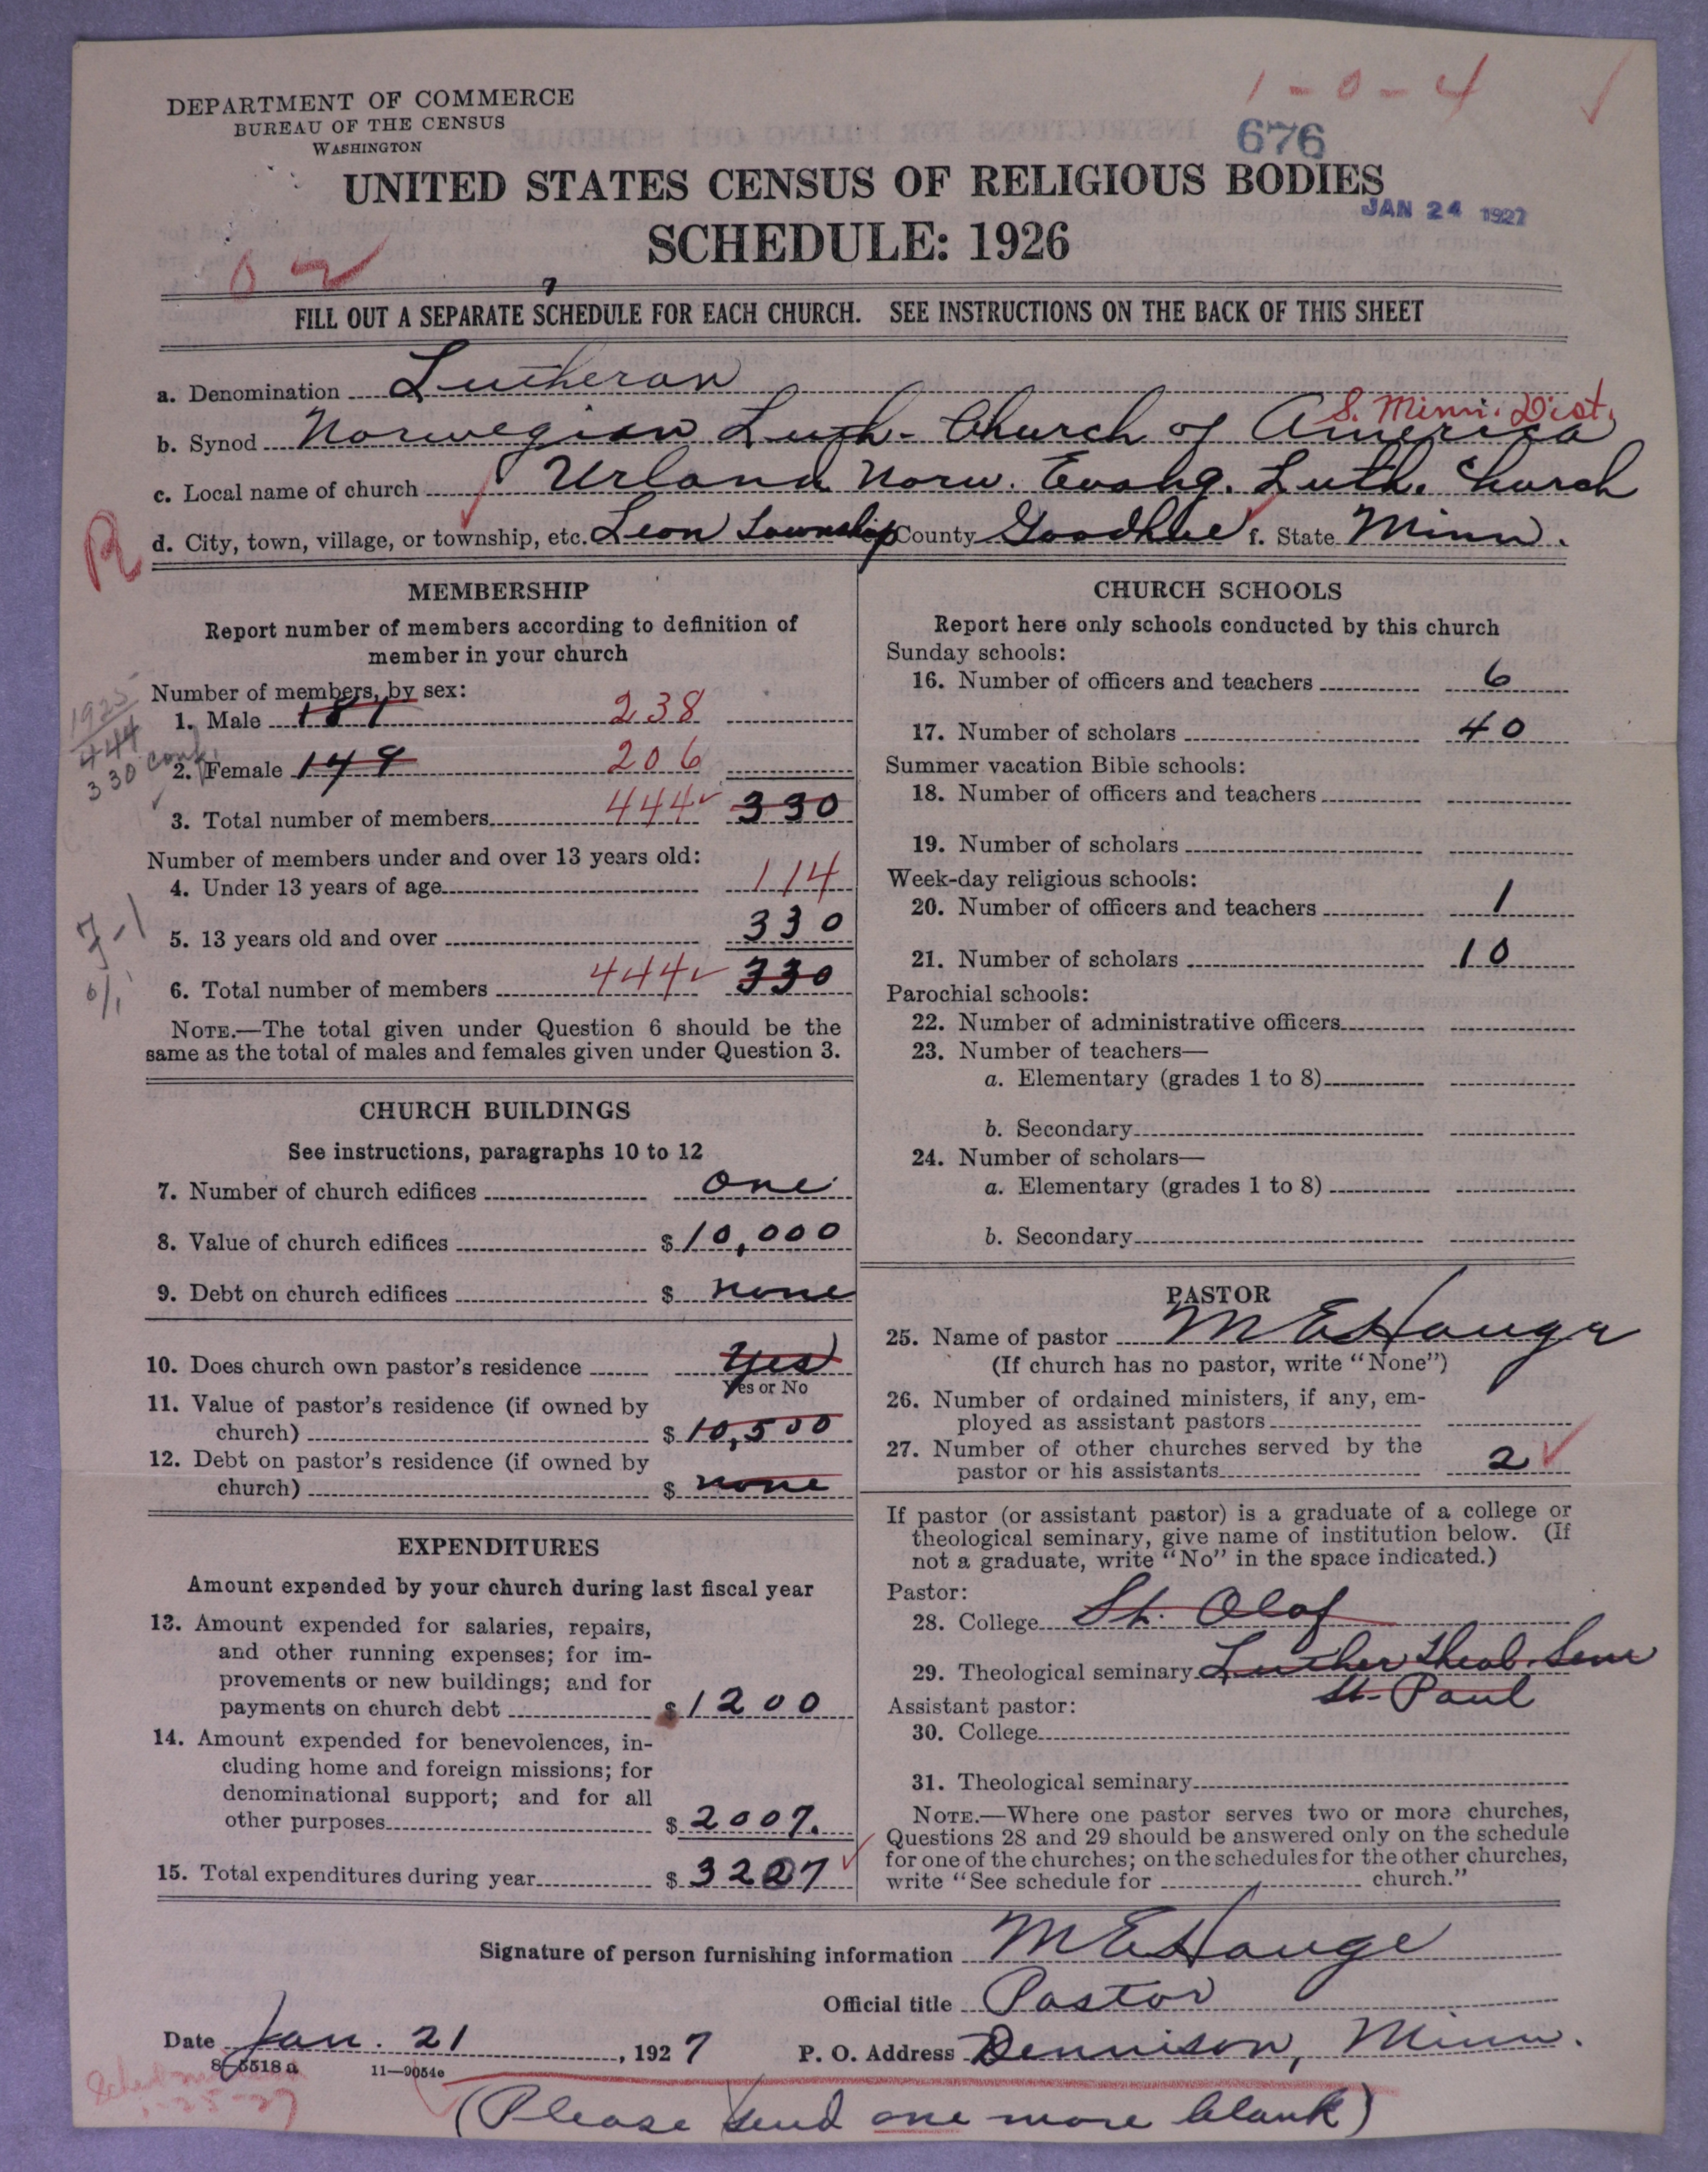 1-0-4
DEPARTMENT OF COMMERCE
BUREAU OF THE CENSUS
WASHINGTON
676
UNITED STATES CENSUS OF RELIGIOUS BODIES
JAN 24 1927
SCHEDULE: 1926
FILL OUT A SEPARATE SCHEDULE FOR EACH CHURCH. SEE INSTRUCTIONS ON THE BACK OF THIS SHEET
a. Denomination Lutheran
S. Minn. Dist.
b. Synod Norwegian Luth. Church of America
c. Local name of church Urland Norw. Evang. Luth. Church
R
d. City, town, village, or township, etc. Leon Township County Goodhue f. State Minn.
MEMBERSHIP
Report number of members according to definition of
member in your church
Number of members, by sex:
1925
444
330 conf.
1. Male 181 238
2. Female 149 206
3. Total number of members 444 330
Number of members under and over 13 years old:
4. Under 13 years of age 114
5. 13 years old and over 330
6. Total number of members 444 330
NOTE.—The total given under Question 6 should be the
same as the total of males and females given under Question 3.
CHURCH BUILDINGS
See instructions, paragraphs 10 to 12
7. Number of church edifices one
8. Value of church edifices $10,000
9. Debt on church edifices $ none
10. Does church own pastor's residence Yes
Yes or No
11. Value of pastor's residence (if owned by
church) $10,500
12. Debt on pastor's residence (if owned by
church) $ none
EXPENDITURES
Amount expended by your church during last fiscal year
13. Amount expended for salaries, repairs,
and other running expenses; for im-
provements or new buildings; and for
payments on church debt $1200
14. Amount expended for benevolences, in-
cluding home and foreign missions; for
denominational support; and for all
other purposes $2007.
15. Total expenditures during year $3207
CHURCH SCHOOLS
Report here only schools conducted by this church
Sunday schools:
16. Number of officers and teachers 6
17. Number of scholars 40
Summer vacation Bible schools:
18. Number of officers and teachers
19. Number of scholars
Week-day religious schools:
20. Number of officers and teachers 1
21. Number of scholars 10
Parochial schools:
22. Number of administrative officers
23. Number of teachers—
a. Elementary (grades 1 to 8)
b. Secondary
24. Number of scholars—
a. Elementary (grades 1 to 8)
b. Secondary
PASTOR
25. Name of pastor M E Hauge
(If church has no pastor, write "None")
26. Number of ordained ministers, if any, em-
ployed as assistant pastors
27. Number of other churches served by the
pastor or his assistants 2
If pastor (or assistant pastor) is a graduate of a college or
theological seminary, give name of institution below. (If
not a graduate, write "No" in the space indicated.)
Pastor:
28. College St. Olaf
29. Theological seminary Luther Theol. Sem
St. Paul
Assistant pastor:
30. College
31. Theological seminary
NOTE.—Where one pastor serves two or more churches,
Questions 28 and 29 should be answered only on the schedule
for one of the churches; on the schedules for the other churches,
write "See schedule for church."
Signature of person furnishing information M E Hauge
Official title Pastor
Date Jan. 21, 1927 P. O. Address Dennison, Minn.
8-5518a 11-9054e
1-25-27
(Please send one more blank)